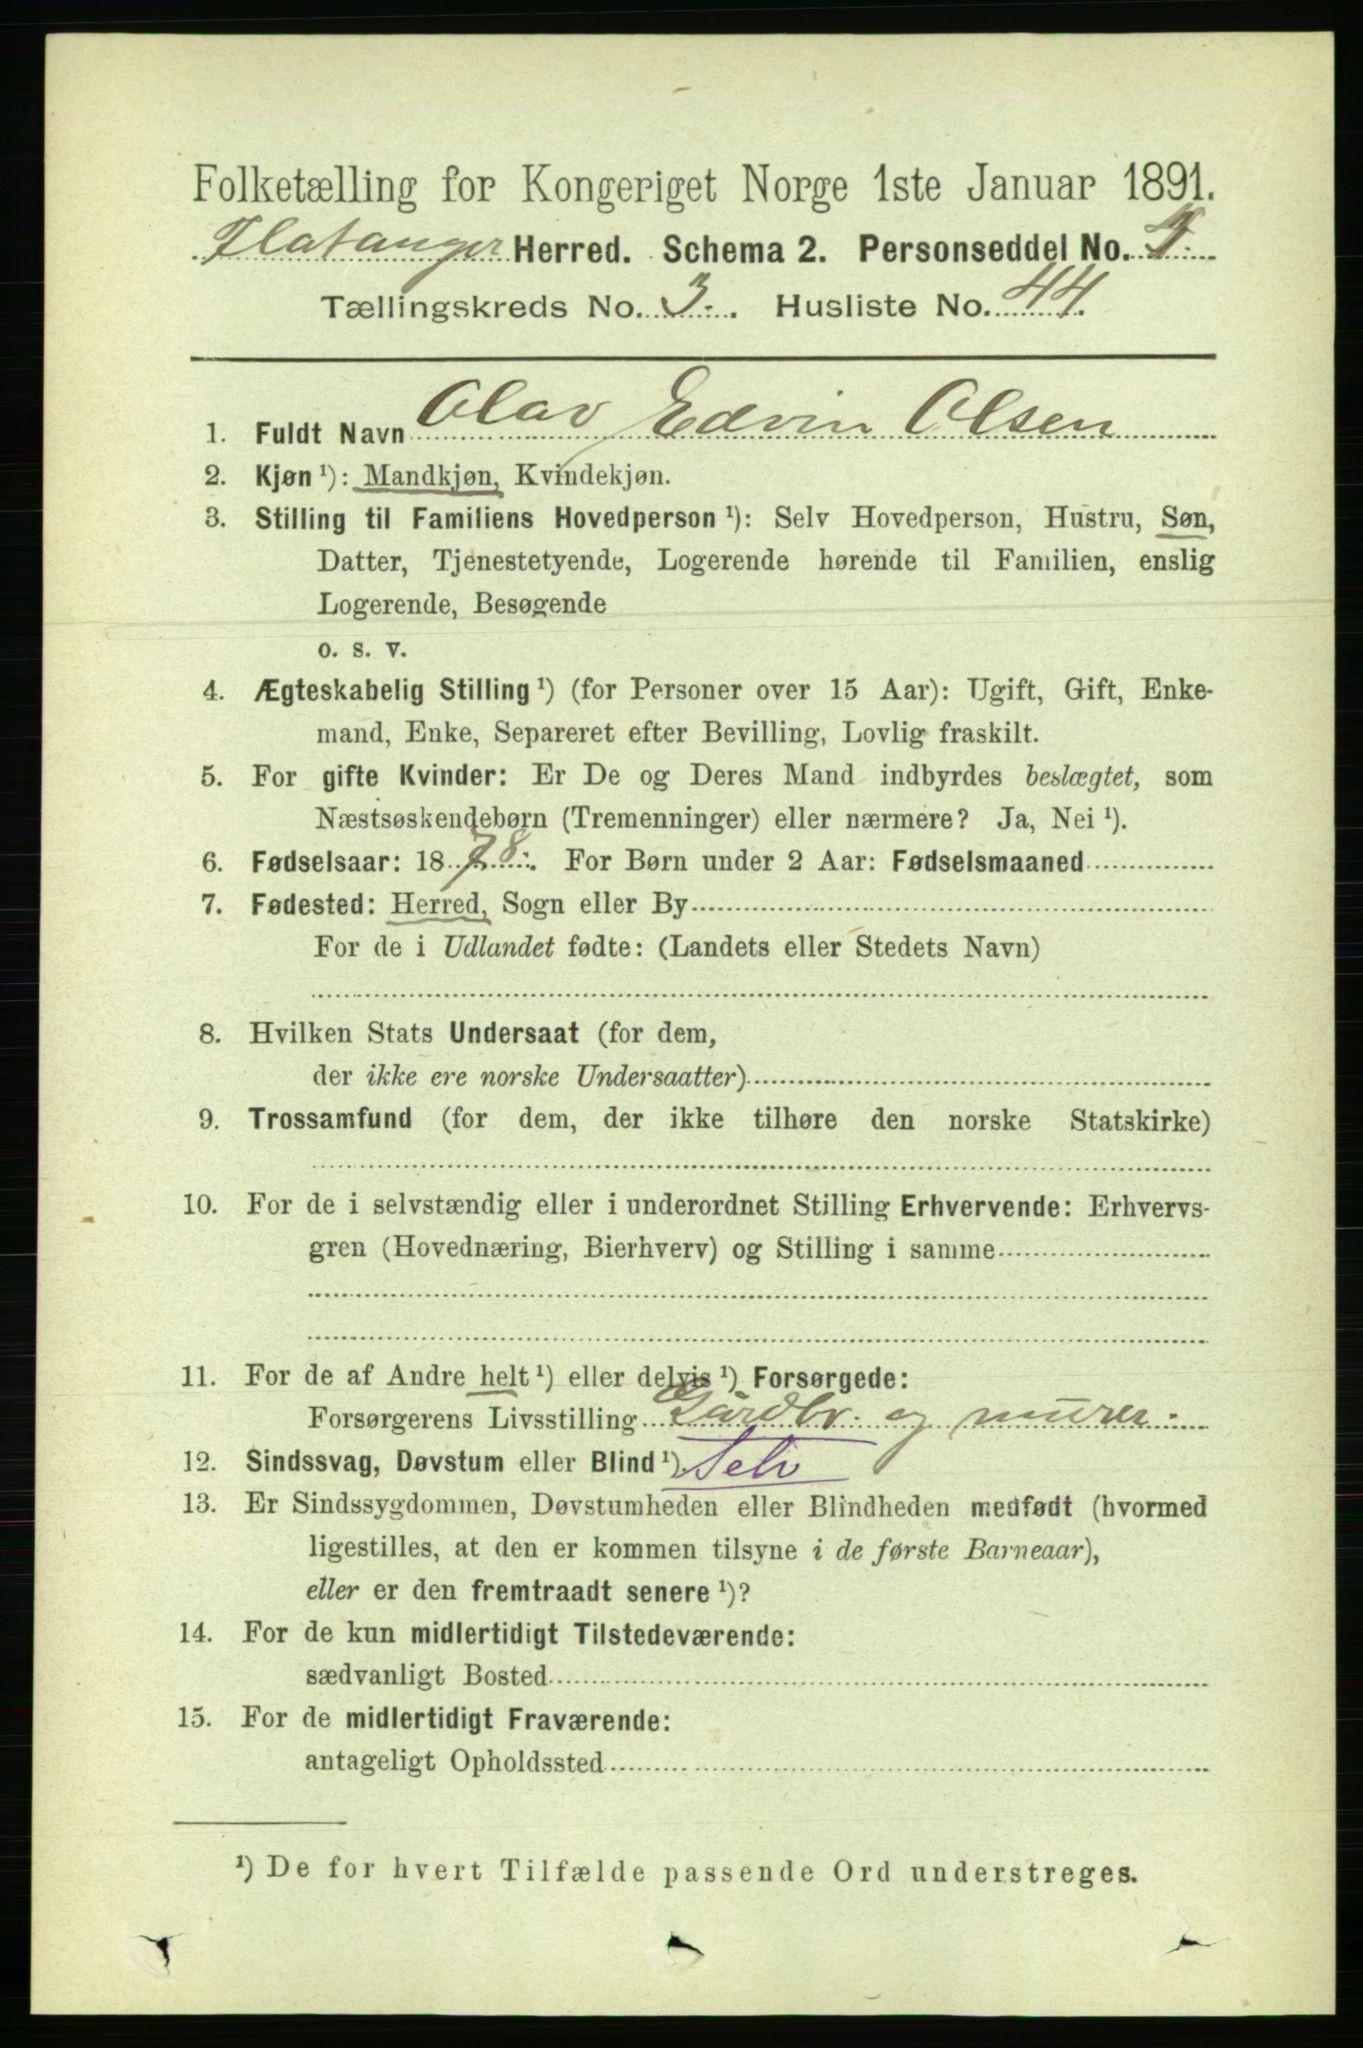 Folketælling for Kongeriget Norge 1ste Januar 1891.
Flatanger Herred. Schema 2. Personseddel No.
Tællingskreds No. 3. Husliste No. 44.
1. Fuldt Navn Olav Edvin Olsen
2. Kjøn ¹): Mandkjøn, Kvindekjøn.
3. Stilling til Familiens Hovedperson ¹): Selv Hovedperson, Hustru, Søn,
Datter, Tjenestetyende, Logerende hørende til Familien, enslig
Logerende, Besøgende
o. s. v.
4. Ægteskabelig Stilling ¹) (for Personer over 15 Aar): Ugift, Gift, Enke-
mand, Enke, Separeret efter Bevilling, Lovlig fraskilt.
5. For gifte Kvinder: Er De og Deres Mand indbyrdes beslægtet, som
Næstsøskendebørn (Tremenninger) eller nærmere? Ja, Nei ¹).
6. Fødselsaar: 1878. For Børn under 2 Aar: Fødselsmaaned
7. Fødested: Herred, Sogn eller By
For de i Udlandet fødte: (Landets eller Stedets Navn)
8. Hvilken Stats Undersaat (for dem,
der ikke ere norske Undersaatter)
9. Trossamfund (for dem, der ikke tilhøre den norske Statskirke)
10. For de i selvstændig eller i underordnet Stilling Erhvervende: Erhvervs-
gren (Hovednæring, Bierhverv) og Stilling i samme
11. For de af Andre helt ¹) eller delvis ¹) Forsørgede:
Forsørgerens Livsstilling Gårdbr. og murer.
12. Sindssvag, Døvstum eller Blind ¹). Selv
13. Er Sindssygdommen, Døvstumheden eller Blindheden medfødt (hvormed
ligestilles, at den er kommen tilsyne i de første Barneaar),
eller er den fremtraadt senere ¹)?
14. For de kun midlertidigt Tilstedeværende:
sædvanligt Bosted
15. For de midlertidigt Fraværende:
antageligt Opholdssted
¹) De for hvert Tilfælde passende Ord understreges.